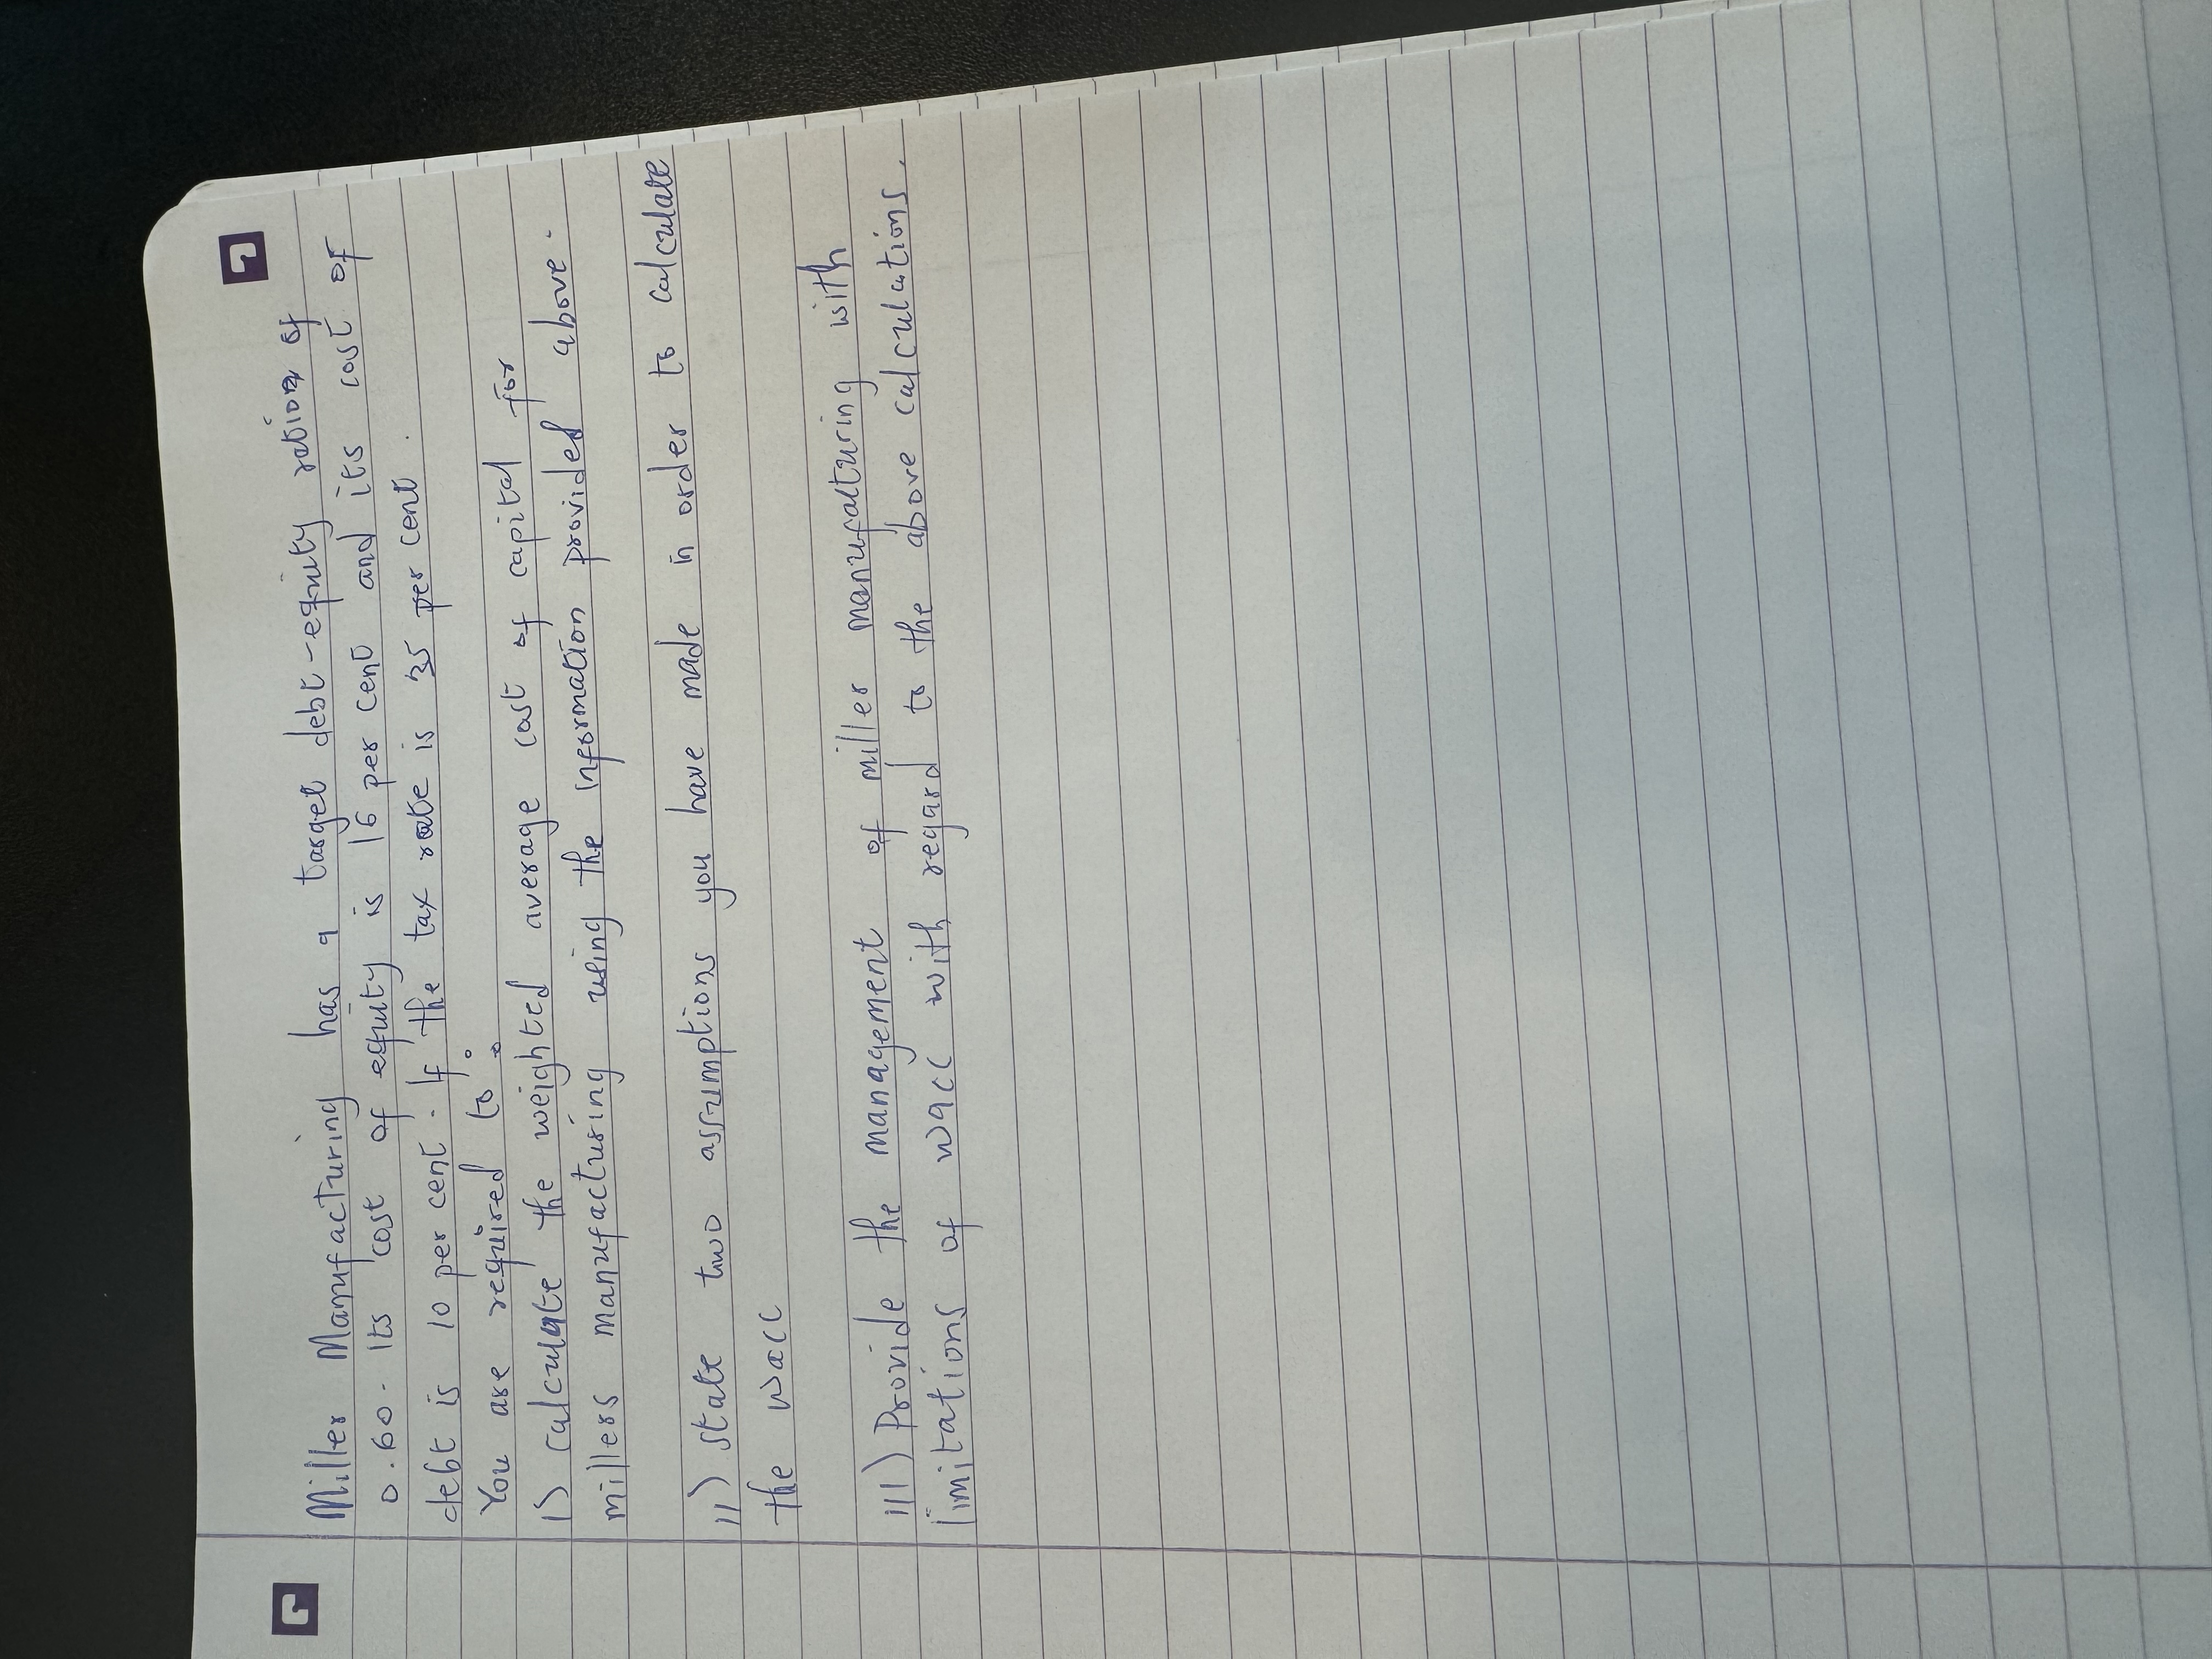 Miller Manufacturing has a target debt-equity ration of
0.60. Its cost of equity is 16 per cent and its cost of
debt is 10 per cent. If the tax rate is 35 per cent.
You are required to:
1) calculate the weighted average cost of capital for
millers manufacturing using the information provided above.
11) state two assumptions you have made in order to calculate
the wacc
111) Provide the management of miller manufacturing with
limitations of wacc with regard to the above calculations.